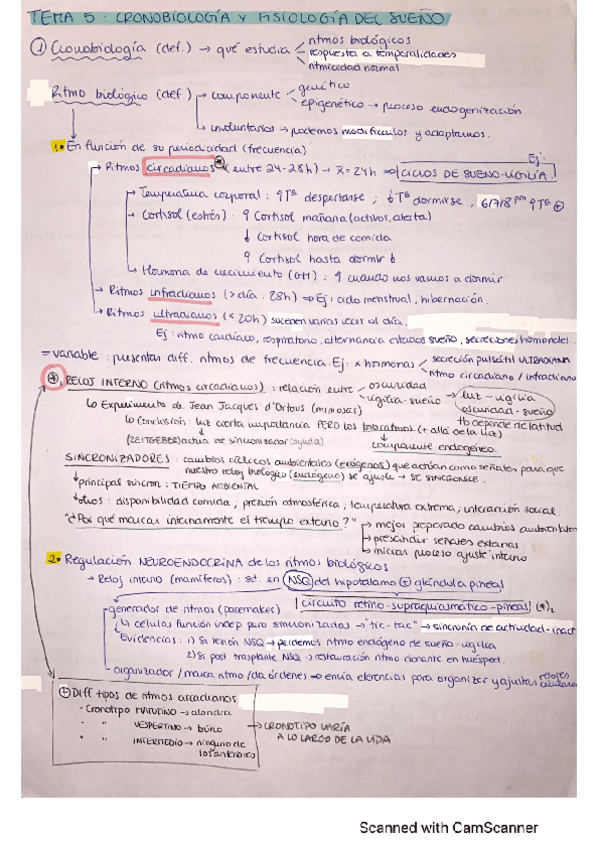 TEMA 5: CRONOBIOLOGÍA Y FISIOLOGÍA DEL SUEÑO
① Cronobiología (def.) → qué estudia
ritmos biológicos
respuesta a temporalidades
ritmicidad normal
Ritmo biológico (def.)
componente
genético
epigenético → proceso endogenización
involuntarios → podemos modificarlos y adaptarnos.
1. En función de su periodicidad (frecuencia)
→ Ritmos circadianos (entre 24-28h) → x̄ = 24h ⇒ Ej: CICLOS DE SUEÑO-VIGILIA
→ Temperatura corporal: ↑Tª despertarse; ↓Tª dormirse, 6/7/8 pm ↑Tª ⊕
→ Cortisol (estrés): ↑ Cortisol mañana (activos, alerta)
↓ Cortisol hora de comida
↑ Cortisol hasta dormir ↓
→ Hormona de crecimiento (GH): ↑ cuando nos vamos a dormir
→ Ritmos infradianos (> día: 28h) ⇒ Ej: ciclo menstrual, hibernación.
→ Ritmos ultradianos (< 20h) suceden varias veces al día.
Ej: ritmo cardíaco, respiratorio, alternancia estados sueño, secreciones hormonales..
= variable: presentan diff. ritmos de frecuencia. Ej: x hormonas
secreción pulsátil ULTRADIANA
ritmo circadiano / infradiano
RELOJ INTERNO (ritmos circadianos): relación entre
oscuridad
vigilia-sueño
luz-vigilia
oscuridad-sueño
tb depende de latitud
↳ Experimento de Jean Jacques d'Ortous (mimosas)
↳ Conclusión: luz cierta importancia PERO los biorritmos (+ allá de la luz)
(ZEITGEBER) actúa de sincronizador (ayuda)
componente endógeno.
SINCRONIZADORES: cambios cíclicos ambientales (exógenos) que actúan como señales para que
nuestro reloj biológico (endógeno) se ajuste → SE SINCRONICE.
→ principal sincron: TIEMPO AMBIENTAL
→ otros: disponibilidad comida, presión atmosférica, temperatura extrema, interacción social
"¿Por qué marcar internamente el tiempo externo?"
→ mejor preparado cambios ambientales
→ prescindir señales externas
→ iniciar proceso ajuste interno
2. Regulación NEUROENDOCRINA de los ritmos biológicos
→ Reloj interno (mamíferos): sit. en NSQ del hipotálamo ⊕ glándula pineal
circuito retino-supraquiasmático-pineal
generador de ritmos (pacemaker)
↳ células función indep pero sincronizadas → "tic-tac" → sincronía de actividad-inact
Evidencias: 1) Si lesión NSQ → perdemos ritmo endógeno de sueño-vigilia
2) Si post. trasplante NSQ → restauración ritmo donante en huésped.
organizador / marca ritmo / da órdenes → envía eferencias para organizar y ajustar relojes celulares
⊕ Diff. tipos de ritmos circadianos
- Cronotipo MATUTINO → alondra
" VESPERTINO → búho
" INTERMEDIO → ninguno de los anteriores
→ CRONOTIPO VARÍA
A LO LARGO DE LA VIDA
Scanned with CamScanner